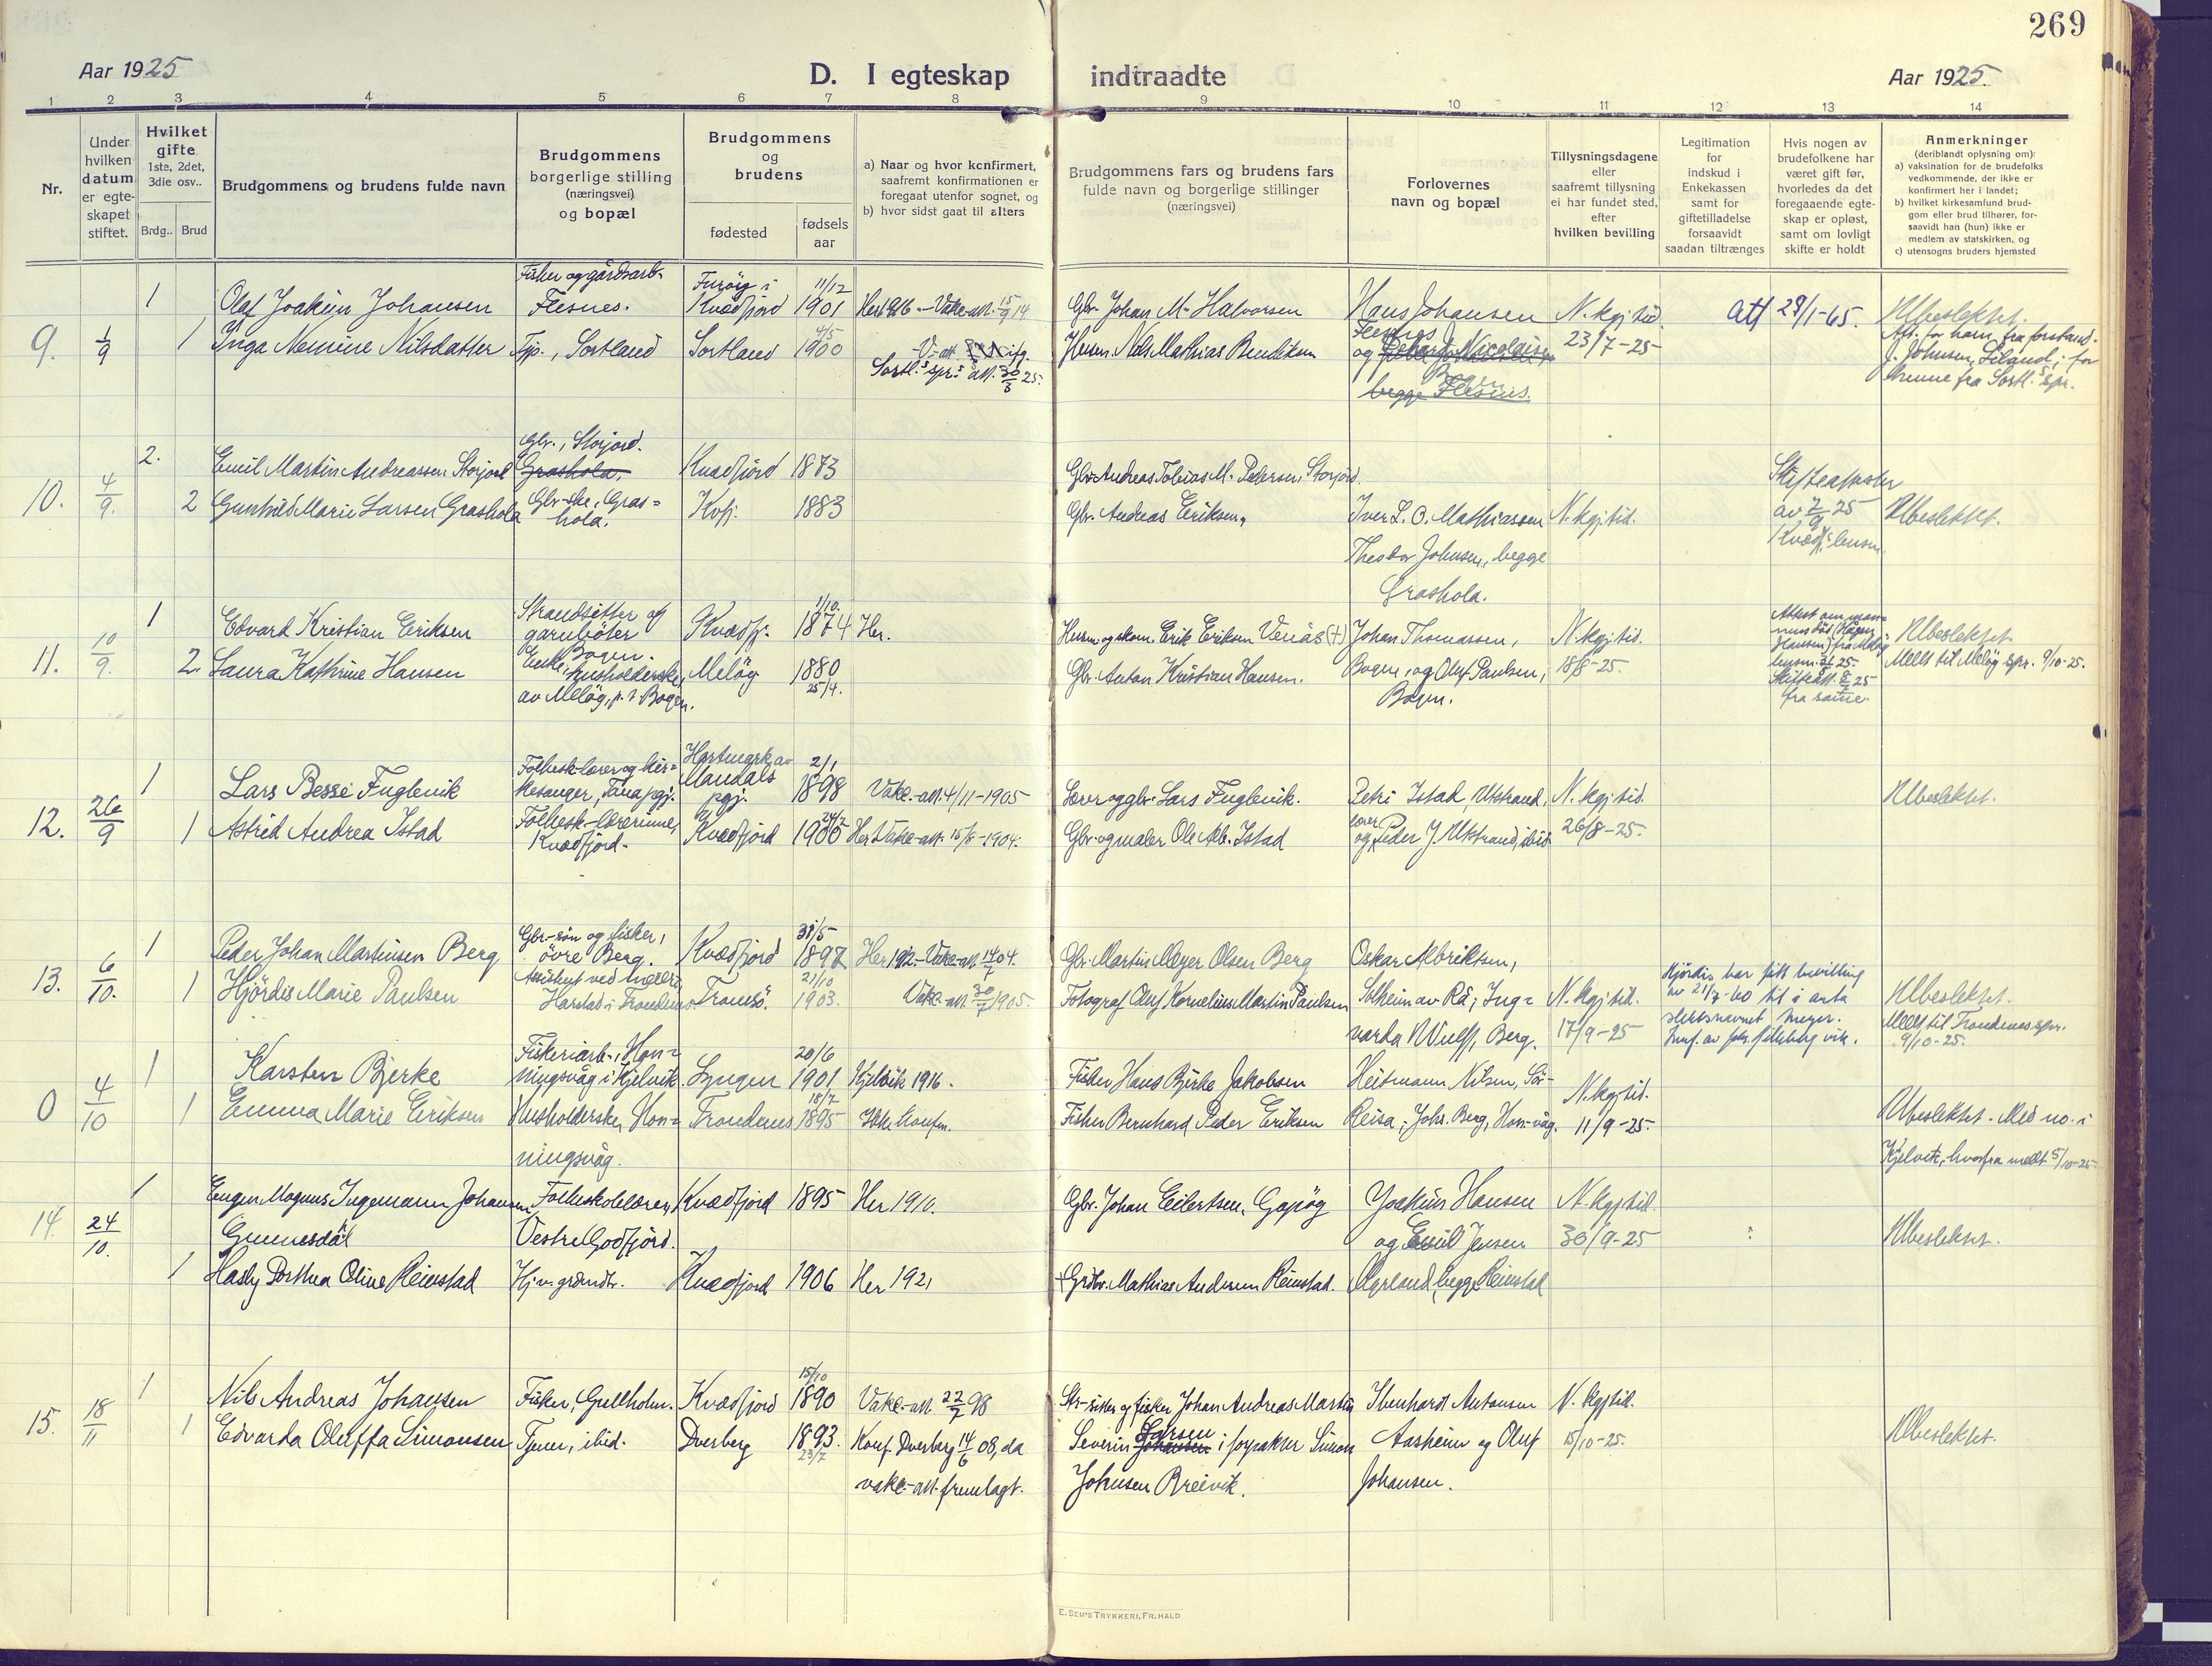 269
Aar 1925
D. I egteskap indtraadte
Aar 1925.
1 2 3 4 5 6 7 8 9 10 11 12 13 14
Nr.
Under hvilken datum er egteskapet stiftet.
Hvilket gifte
1ste, 2det, 3die osv..
Brdg.. Brud
Brudgommens og brudens fulde navn
Brudgommens borgerlige stilling (næringsvei) og bopæl
Brudgommens og brudens
fødested
fødsels aar
a) Naar og hvor konfirmert, saafremt konfirmationen er foregaat utenfor sognet, og
b) hvor sidst gaat til alters
Brudgommens fars og brudens fars fulde navn og borgerlige stillinger (næringsvei)
Forlovernes navn og bopæl
Tillysningsdagene eller saafremt tillysning ei har fundet sted, efter hvilken bevilling
Legitimation for indskud i Enkekassen samt for giftetilladelse forsaavidt saadan tiltrænges
Hvis nogen av brudefolkene har været gift før, hvorledes da det foregaaende egteskap er opløst, samt om lovligt skifte er holdt
Anmerkninger
(deriblandt oplysning om):
a) vaksination for de brudefolks vedkommende, der ikke er konfirmert her i landet;
b) hvilket kirkesamfund brudgom eller brud tilhører, forsaavidt han (hun) ikke er medlem av statskirken, og
c) utensogns bruders hjemsted
9. 1/9
1 Olaf Joakim Johansen
Fisker og gårdsarb. Flesnes.
Kvædfjord 11/12 1901
Gbr. Johan M. Halvorsen
Hans Johansen
Flesnes
N. kgj. tid.
23/7-25
att 29/1-65.
Ubeslektet.
1 Inga Nemine Nilsdatter
Tjp., Sortland
Sortland 4/5 1900
Sortl.s spr.s att. 30/8 25.
Husm. Nils Mathias Bendiksen
og Nicolaisen
begge Flesnes.
Att. for ham fra forstand. J. Johnsen, Liland; for henne fra Sortl.s spr.
10. 4/9.
2. Emil Martin Andreassen Storjord
Gbr., Storjord.
Grashola.
Kvædfjord 1873
Gbr. Andreas Tobias M. Pedersen, Storjord.
2 Gunhild Marie Larsen Grashola
Gbr-ske, Grashola.
Kvfj. 1883
Gbr. Andreas Eriksen,
Iver L. O. Mathiassen
Theodor Johnsen, begge
Grashola.
N. kgj. tid.
Skifteattester av 2/9 25 Kvædfj. lensm.
Ubeslektet.
11. 10/9.
1 Edvard Kristian Eriksen
Strandsitter og garnbøter Bogen.
Kvædfj. 1/10. 1874 Her.
Husm. og skom. Erik Eriksen Venås (+)
Johan Thomassen,
N. kgj. tid.
Ubeslektet.
2. Laura Kathrine Hansen
Enke, husholderske av Meløy, p.t. Bogen.
Meløy 1880 25/4.
Gbr. Anton Kristian Hansen.
Bogen, og Oluf Paulsen,
Bogen.
18/8-25.
fra samme.
Meldt til Meløy spr. 9/10-25.
12. 26/9
1 Lars Besse Fuglevik
Folkesk-lærer og kirkesanger, Tana pgj.
Hartmark av Mandals pgj. 2/1 1898
Vakc.-att. 4/11-1905
Lærer og gbr. Lars Fuglevik.
Petri Istad, Utstrand,
N. kgj. tid.
Ubeslektet.
1 Astrid Andrea Istad
Folkesk-lærerinne, Kvædfjord.
Kvædfjord 1900
Her. Vakc-att. 15/8-1904.
Gbr. og maler Ole Alb. Istad
og lærer Peder J. Utstrand, ibid.
26/8-25.
13. 6/10.
1 Peder Johan Martinsen Berg
Gbr-søn og fisker, øvre Berg.
Kvædfjord 31/5 1897
Her 1912.-Vakc-att. 14/7 04.
Gbr. Martin Meyer Olsen Berg
Oskar Albriktsen,
1 Hjördis Marie Paulsen
Harstad i Trondenes.
Tromsö. 21/10 1903.
Vakc.-att. 30/7 1905.
Fotograf Oluf Kornelius Martin Paulsen
Solheim av Rå; Ingvarda Wulff, Berg.
N. kgj. tid.
17/9-25
Hjördis har fått bevilling av 21/7-60 til å anta slektsnavnet Meyer.
Ubeslektet.
Meldt til Trondenes spr. 9/10-25.
0 4/10
1 Karsten Bjerke
Fiskeriarb., Honningsvåg i Kjelvik.
Lyngen 20/6 1901
Kjelvik 1916.
Fisker Hans Bjerke Jakobsen
Heitmann Nilsen, Sör-
N. kgj. tid.
1 Emma Marie Eriksen
Husholderske, Honningsvåg.
Trondenes 18/7 1895
Ikke konfm.
Fisker Bernhard Peder Eriksen
Reisa; Johs. Berg, Hon-våg.
11/9-25.
Ubeslektet. Med no. i Kjelvik, hvorfra meldt 5/10-25
14. 24/10.
1 Eugen Magnus Ingemann Johansen
Gunnesdal
Folkeskolelærer, Vestre Godfjord.
Kvædfjord 1895 Her 1910.
Gbr. Johan Eilertsen, Gapöy
Joakim Hansen
og Emil Jensen
N. kgj. tid.
30/9-25
Ubeslektet.
1 Hasly Dorthea Oline Reinstad
Hjv. grdmdtr.
Kvædfjord 1906 Her 1921
+Grdbr. Mathias Andersen Reinstad.
begge Reinstad
15. 18/11
1 Nils Andreas Johansen
Fisker, Gullholm.
Kvædfjord 15/10 1890
Vakc.-att. 22/7 98
Str-sitter og fisker Johan Andreas Martin
Ibenhardt Antonsen
N. kgj. tid.
1 Edvarda Oluffa Simonsen
Tjener, ibid.
Dverberg 1893. 23/7
Konf. Dverberg 14/6 08, da
vakc.-att. fremlagt.
Severin Larsen Johansen i forpakter Simon
Johnsen Breivik.
Aasheim og Oluf
Johansen.
15/10-25.
Ubeslektet.
E. SEM'S TRYKKERI, FR.HALD